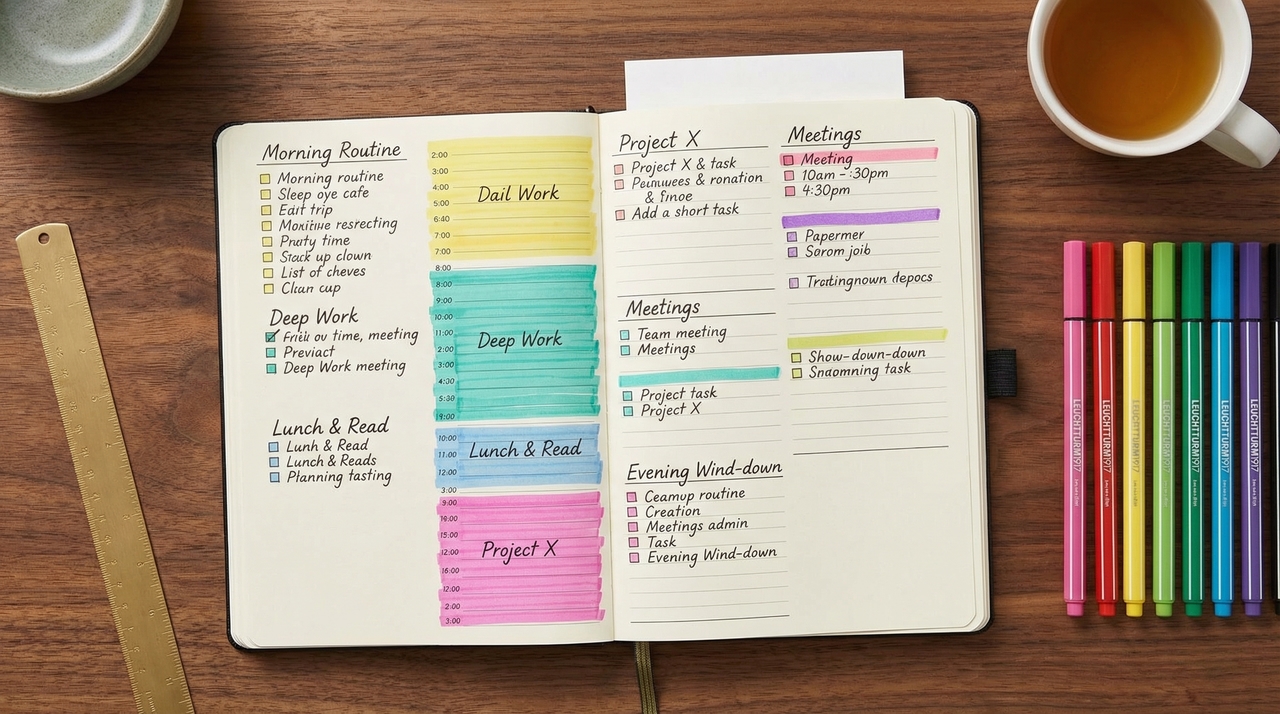 Morning Routine
Morning routine
Sleep oye cafe
trip
time
up clown
List of cheves
cup
Deep Work
time, meeting
Deep Work meeting
Lunch & Read
& Read
Lunch & Reads
Planning tasting
2:00
3:00
4:00
5:00
6:40
7:00
7:00
Dail Work
8:00
8:00
9:00
10:00
11:00
2:00
3:00
4:30
5:30
9:00
Deep Work
10:00
11:00
12:00
Lunch & Read
3:00
9:00
10:00
15:00
12:00
16:00
12:00
2:00
3:00
Project X
Project X
Project X & task
& ronation
&
Add a short task
Meetings
Team meeting
Meetings
Project task
Project X
Evening Wind-down
Ceamup routine
Creation
Meetings admin
Task
Evening Wind-down
Meetings
Meeting
10am - :30pm
4:30pm
Papermer
Sarom joib
depocs
Show-down-down
Snaomning task
LEUCHTTURM1917
LEUCHTTURM1917
LEUCHTTURM1917
LEUCHTTURM1917
LEUCHTTURM1917
LEUCHTTURM1917
LEUCHTTURM1917